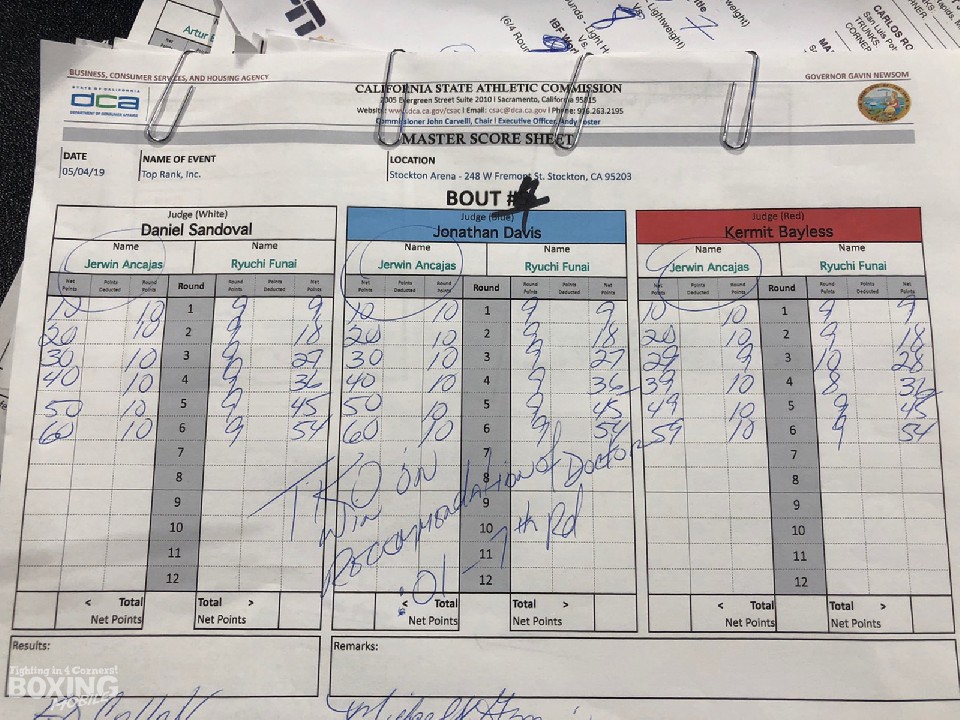 Artur
Lightweight)
weight)
CARLOS RO
San Luis Pot
TRUNKS
CORNER
BUSINESS, CONSUMER SERVICES, AND HOUSING AGENCY
GOVERNOR GAVIN NEWSOM
STATE OF CALIFORNIA
dca
DEPARTMENT OF CONSUMER AFFAIRS
CALIFORNIA STATE ATHLETIC COMMISSION
2005 Evergreen Street Suite 2010 | Sacramento, California 95815
Website: www.dca.ca.gov/csac | Email: csac@dca.ca.gov | Phone: 916.263.2195
Commissioner John Carvelli, Chair | Executive Officer, Andy Foster
MASTER SCORE SHEET
DATE NAME OF EVENT LOCATION
05/04/19 Top Rank, Inc. Stockton Arena - 248 W Fremont St. Stockton, CA 95203
BOUT #
Judge (White) Judge (Blue) Judge (Red)
Daniel Sandoval Jonathan Davis Kermit Bayless
Name Name Name Name Name Name
Jerwin Ancajas Ryuchi Funai Jerwin Ancajas Ryuchi Funai Jerwin Ancajas Ryuchi Funai
Net Points Points Deducted Round Points Round Round Points Points Deducted Net Points Net Points Points Deducted Round Points Round Round Points Points Deducted Net Points Net Points Points Deducted Round Points Round Round Points Points Deducted Net Points
10 10 1 9 9 10 10 1 9 9 10 10 1 9 9
20 10 2 9 18 20 10 2 9 18 20 10 2 9 18
30 10 3 9 27 30 10 3 9 27 29 9 3 10 28
40 10 4 9 36 40 10 4 9 36 39 10 4 8 36
50 10 5 9 45 50 10 5 9 45 49 10 5 9 45
60 10 6 9 54 60 10 6 9 54 59 10 6 9 54
7 7 7
8 8 8
9 9 9
10 10 10
11 11 11
12 12 12
TKO on
Win
Reccomendation of Doctor
:01 - 7th Rd
< Total Total > < Total Total > < Total Total >
Net Points Net Points Net Points Net Points Net Points Net Points
Results: Remarks:
Fighting in 4 Corners!
BOXING
MOBILE